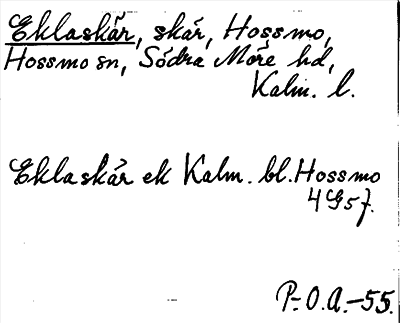 Eklaskär, skär, Hossmo,
Hossmo sn, Södra Möre hd,
Kalm. l.
Eklaskär ek Kalm. bl. Hossmo
4G57.
P.-O.A.-55.